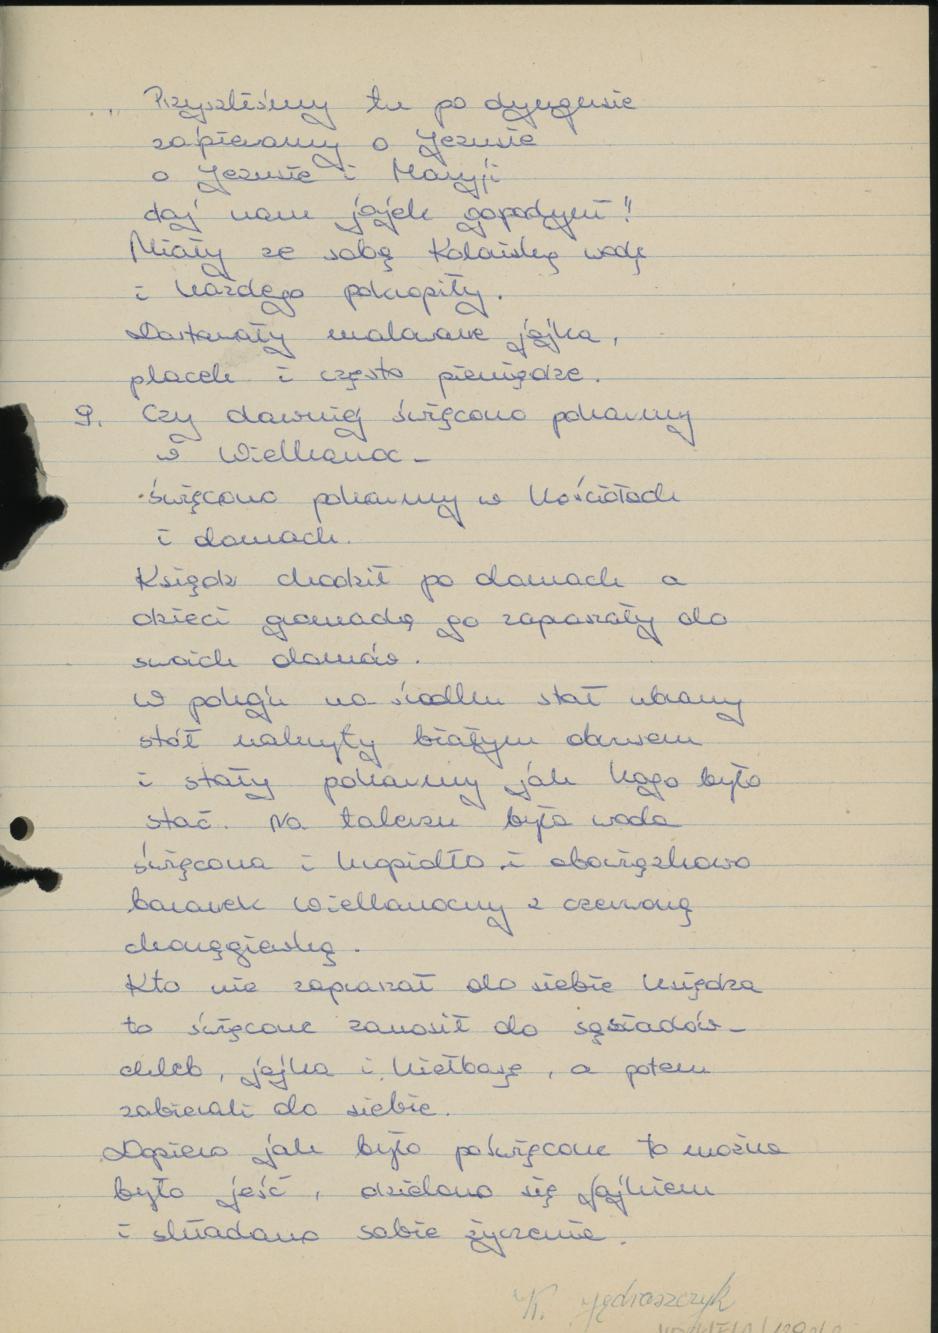 „Przyszliśmy tu po dyngusie
zaśpiewamy o Jezusie
o Jezusie i Maryji
daj nam jajek gospodyni"!
Miały ze sobą kolońską wodę
i każdego pokropiły.
Dostawały malowane jajka,
placek i często pieniądze.
9. Czy dawniej święcono pokarmy
w Wielkanoc –
święcono pokarmy w kościołach
i domach.
Ksiądz chodził po domach a
dzieci gromadą go zapraszały do
swoich domów.
W pokoju na środku stał ubrany
stół nakryty białym obrusem
i stały pokarmy jak kogo było
stać. Na talerzu była woda
święcona i kropidło i obowiązkowo
baranek wielkanocny z czerwoną
chorągiewką.
Kto nie zapraszał do siebie księdza
to święcone zanosił do sąsiadów –
chleb, jajka i kiełbasę, a potem
zabierali do siebie.
Dopiero jak było poświęcone to można
było jeść, dzielono się jajkiem
i składano sobie życzenia.
K. Jędraszczyk